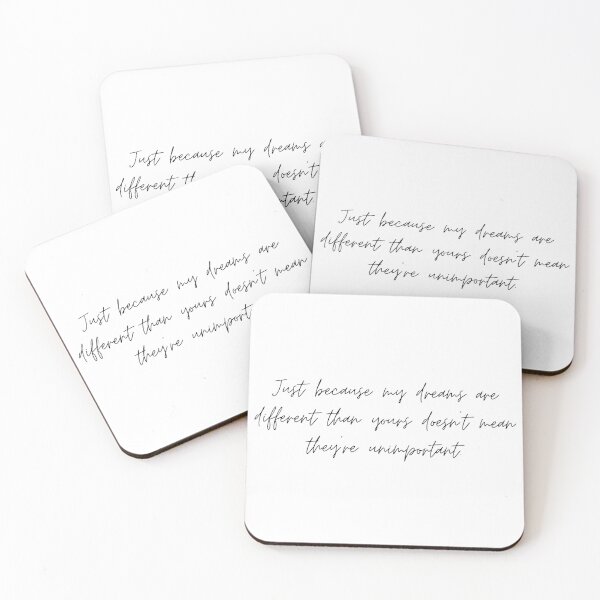 Just because my dreams
different doesn't
Just because my dreams are
different than yours doesn't mean
they're unimportant.
Just because my dreams are
different than yours doesn't mean
they're
Just because my dreams are
different than yours doesn't mean
they're unimportant.